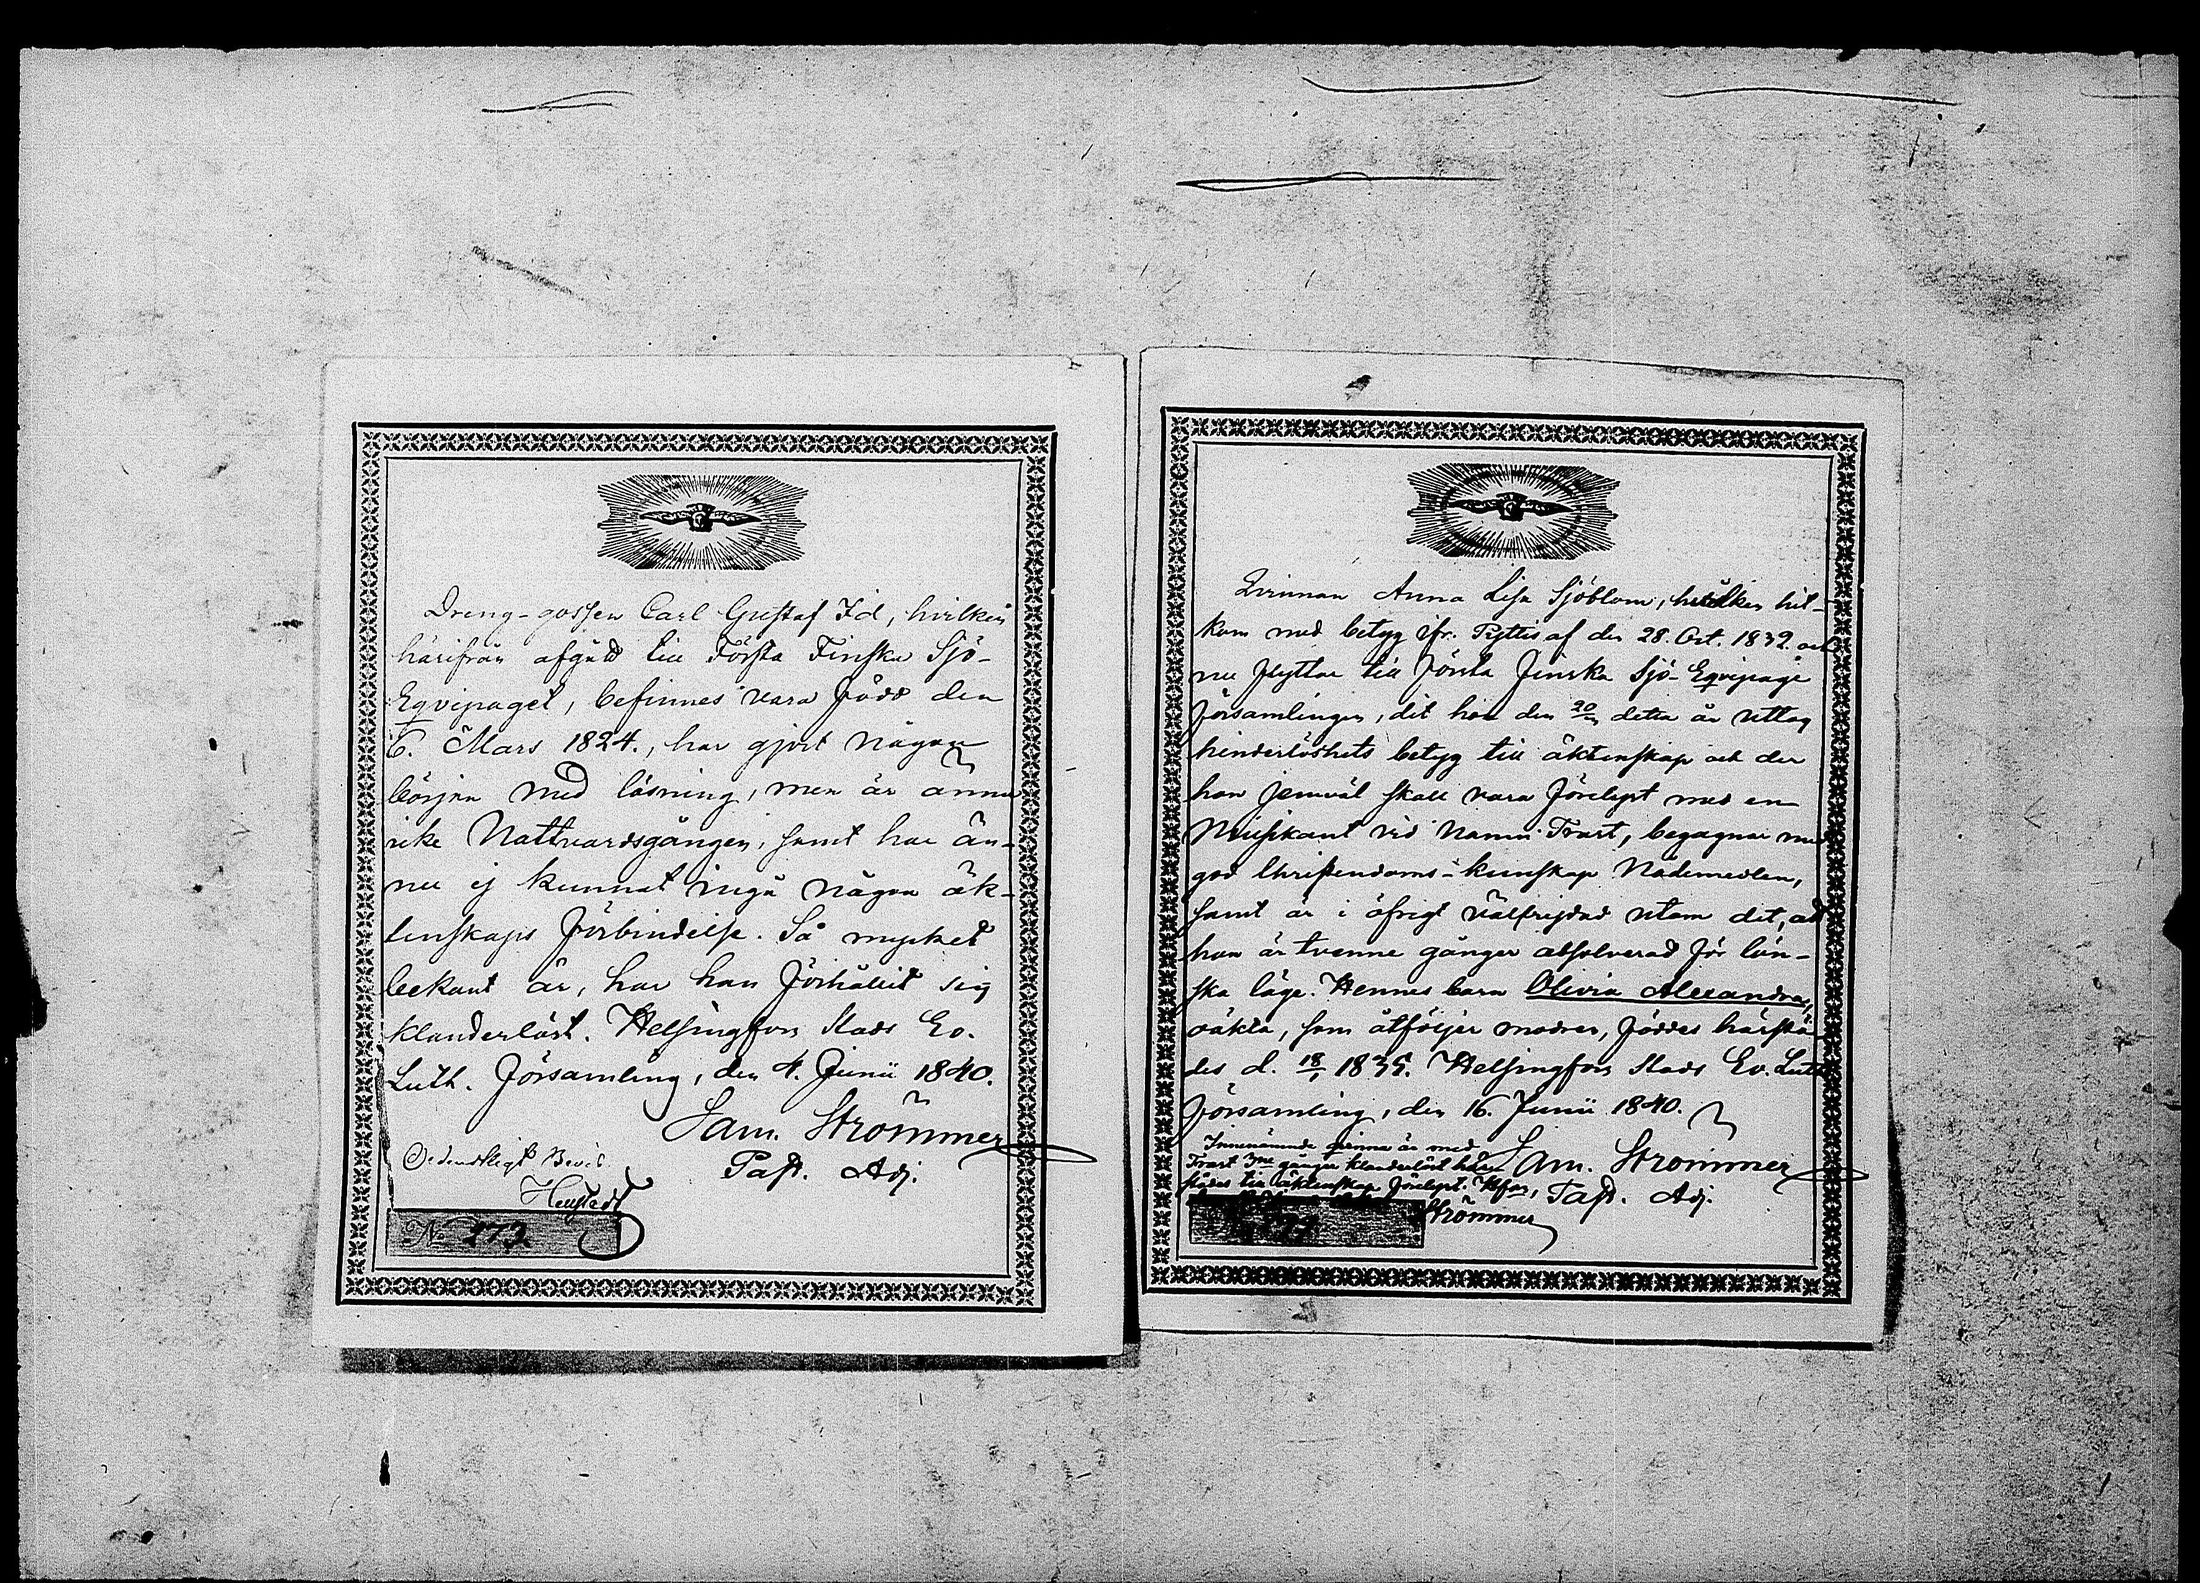 Dreng-gossen Carl Gustaf Id, hvilken
härifrån afgått till Första Finska Sjö-
Eqvipaget, befinnes vara född den
6. Mars 1824., har gjort någon
början med läsning, men är ännu
icke Nattvardsgången, samt har än-
nu ej kunnat ingå någon äk-
tenskaps förbindelse. Så mycket
bekant är, har han förhållit sig
klanderlöst. Helsingfors Stads Ev.
Luth. Församling, den 4. Junii 1840.
Sam. Strömmer
Past. Adj.
Bevis.
No 273
Qvinnan Anna Lisa Sjöblom, hvilken hit-
kom med betyg ifr. Pyttis af den 28. Oct. 1832. och
nu flyttar till Första Finska Sjö-Eqvipage
församlingen, dit hon den 20 detta år uttog
hinderlöshets betyg till äktenskap och der
hon jemväl skall vara förelyst med en
Musikant vid namn Trast, begagnar med
god Christendoms-kunskap Nådemedlen,
samt är i öfrigt välfrejdad utom det, att
hon är tvenne gånger absolverad för lön-
ska läge. Hennes barn Olivia Alexandra,
oäkta, som åtföljer modren, föddes härstä-
des d. 18/1 1835. Helsingfors Stads Ev. Luth.
Församling, den 16. Junii 1840.
Innenämnde qvinna är med
Trast 3ne gånger klanderlöst
till äktenskap förelyst. Hfors,
Strömmer
Sam. Strömmer
Past. Adj.